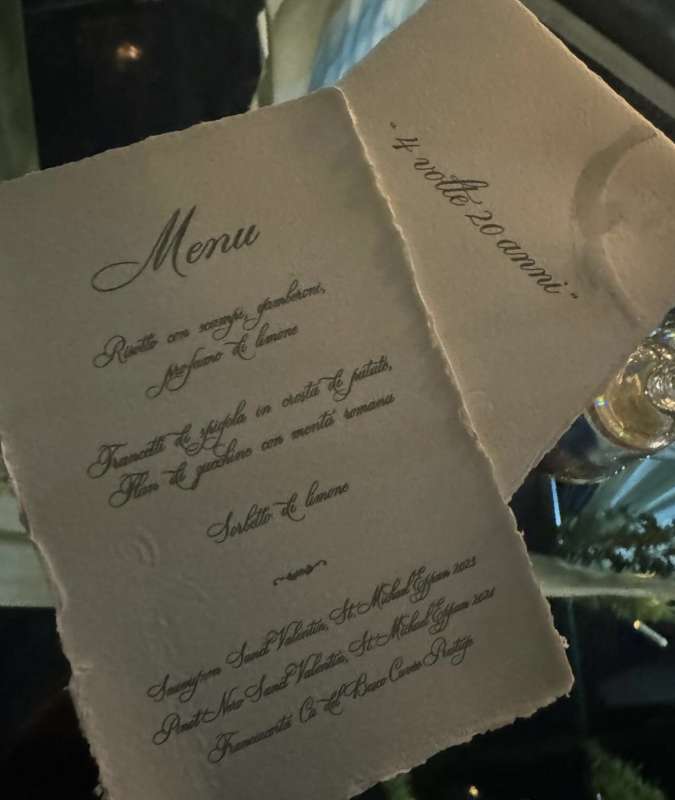 Menu
Risotto con scampi, gamberoni,
profumo di limone
Trancetti di spigola in crosta di patate,
Flan di zucchine con menta romana
Sorbetto di limone
Sauvignon Sanct Valentin, St. Michael Eppan 2023
Pinot Nero Sanct Valentin, St. Michael Eppan 2021
Franciacorta Ca' del Bosco Cuvée Prestige
"4 volte 20 anni"